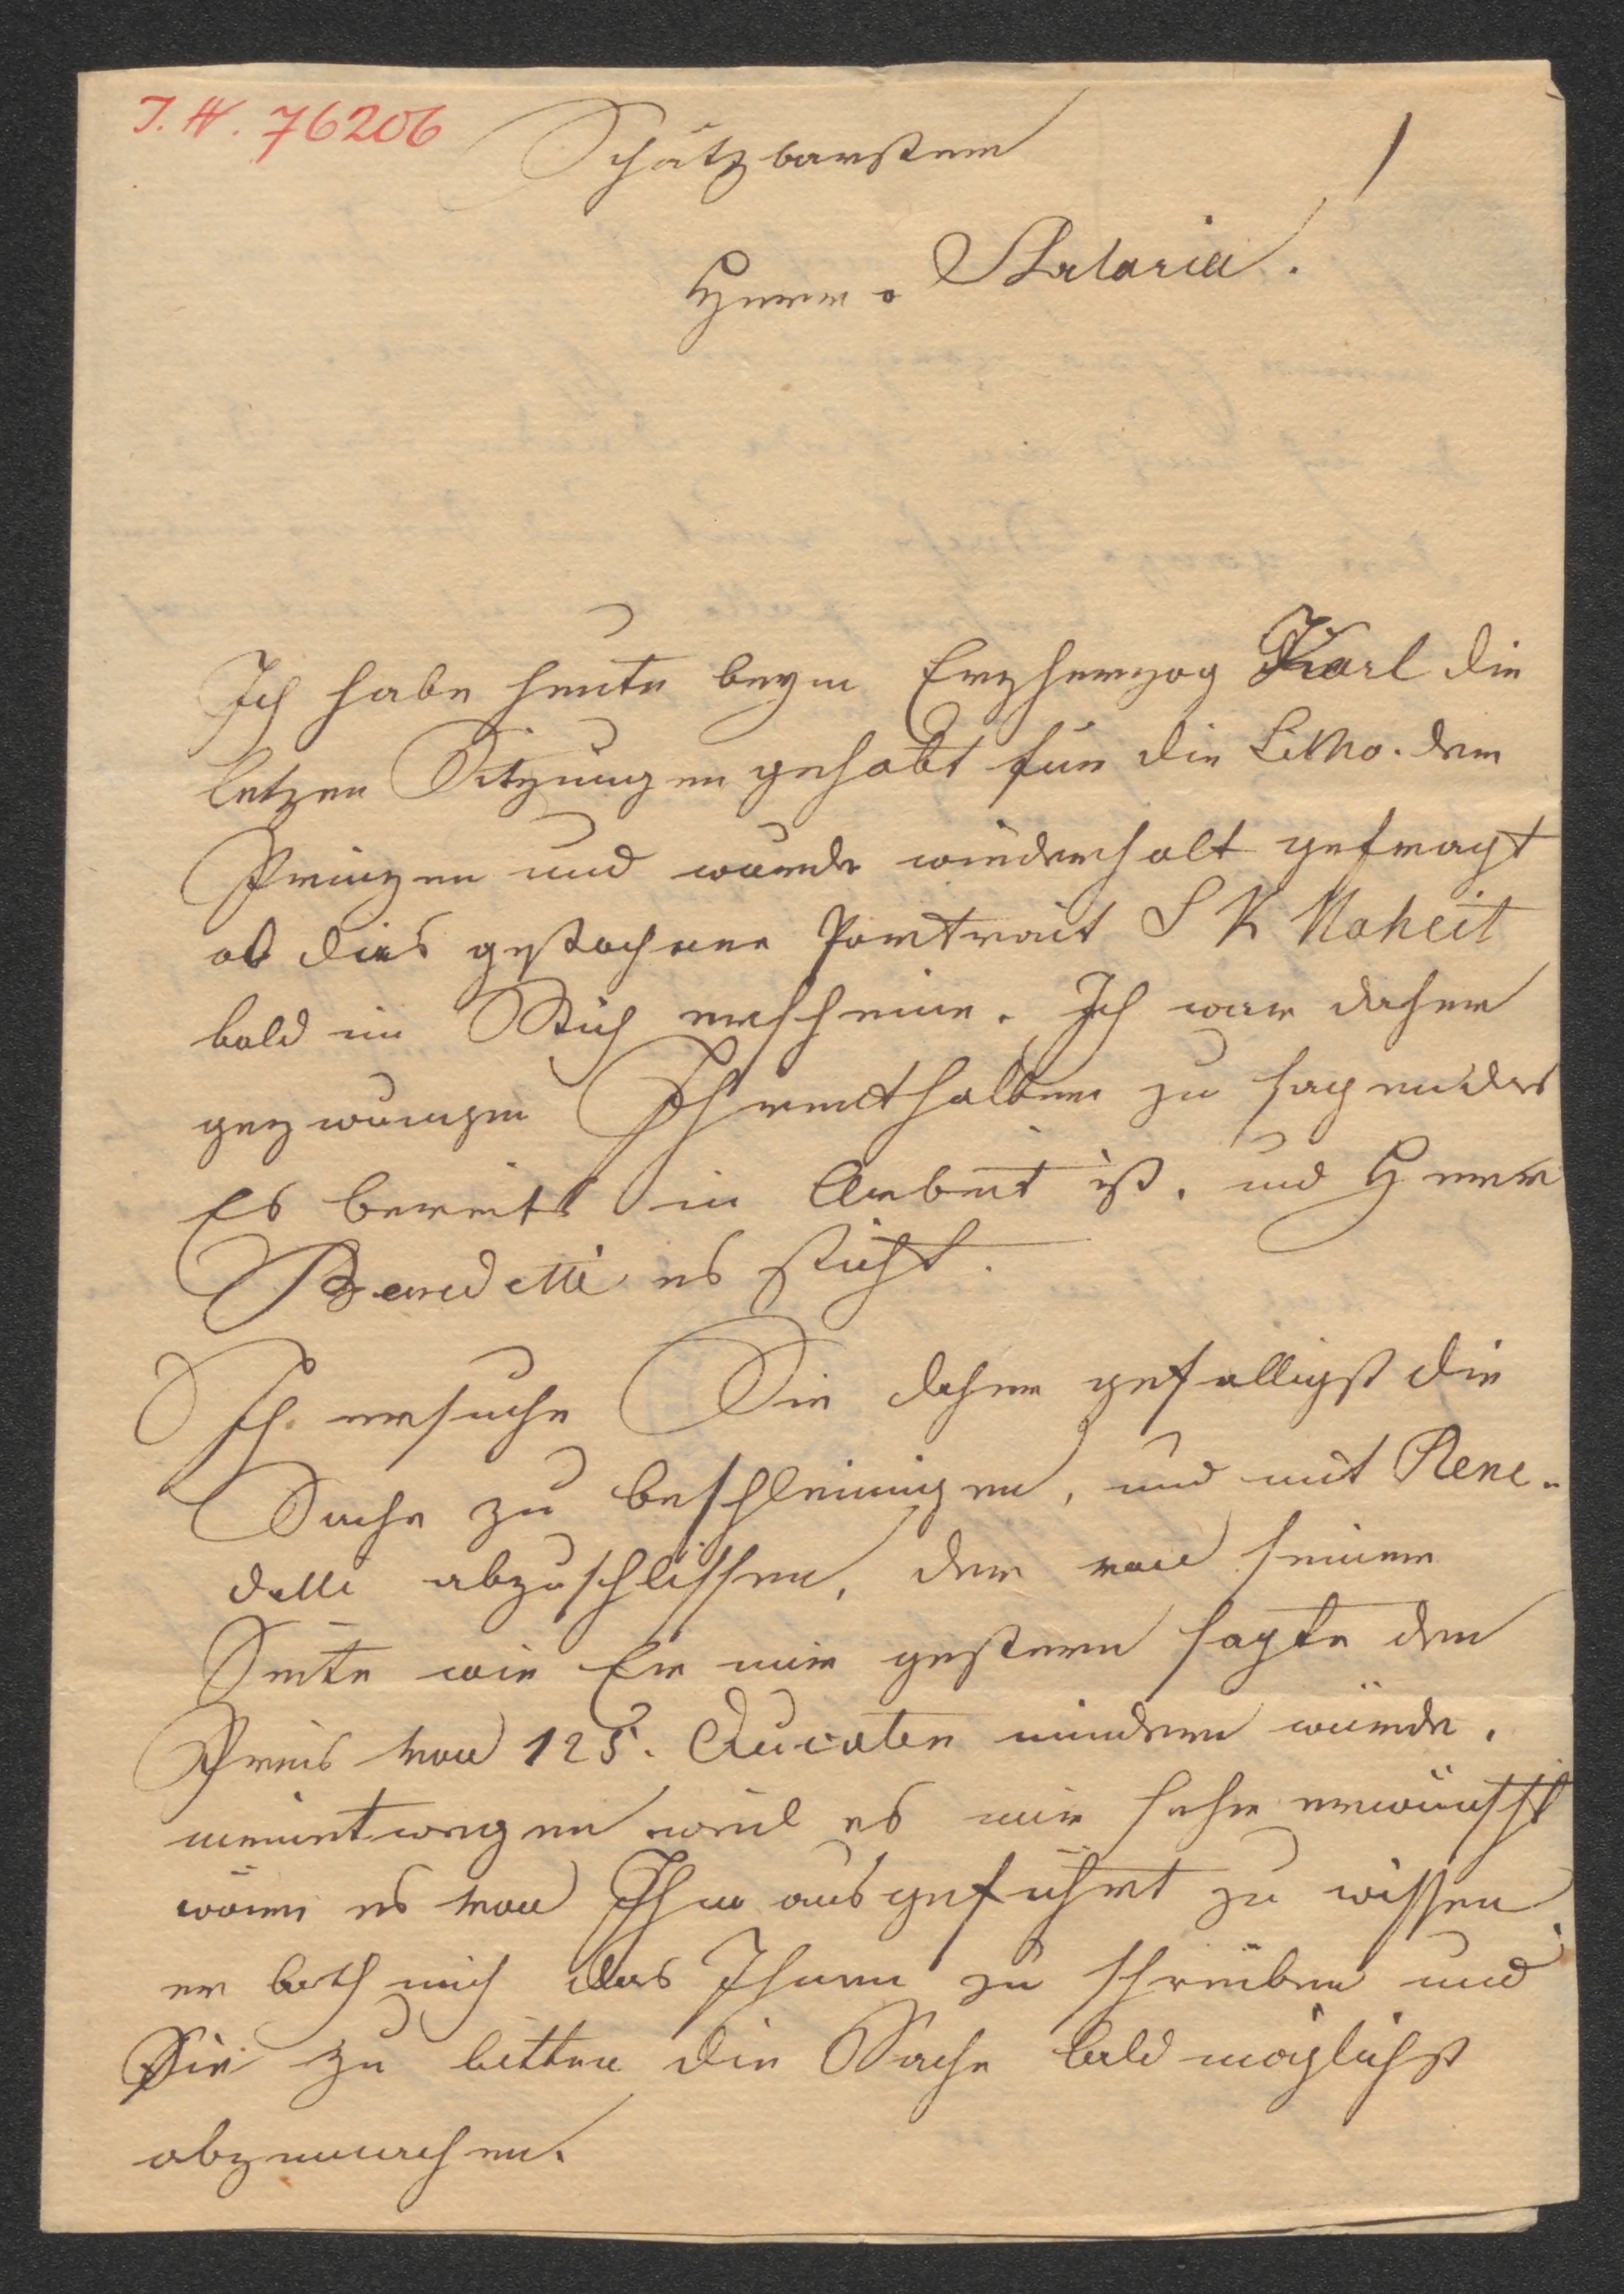 I. N. 76206
Schätzbarster
Herr v Artaria.
Ich habe heute beym Erzherzog Karl die
letzen Sitzungen gehabt für die Litho. der
Prinzen und wurde wiederholt gefragt
ob dies gestochene Portrait S K Hoheit
bald im Stich erscheine. Ich war daher
gezwungen Ihrenthalben zu sagen das
Es bereits in Arbeit ist. und Herr
Benedetti es sticht.
Ich ersuche Sie daher gefalligst die
Sache zu beschleinigen, und mit Bene-
detti abzuschlissen, der von seiner
Seite wie Er mir gestern sagte den
Preis von 125. Ducaten mindern würde.
meinetwegen weil es mir sehr erwünscht
wäre es von Ihm ausgeführt zu wissen
er bath mich das Ihnen zu schreiben und
Sie zu bitten die Sache bald möglichst
abzumachen.